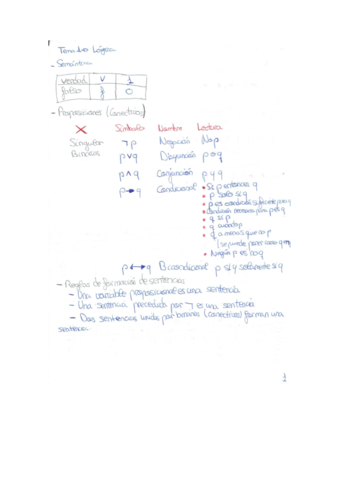 Tema 1: Lógica
- Semántica
verdad V 1
falso f 0
- Proposiciones (Conectivas)
X Símbolo Nombre Lectura
Singular ¬p Negación No p
Binarias p∨q Disyunción p o q
p∧q Conjunción p y q
p→q Condicional • Si p entonces q
• p sólo si q
• p es condición suficiente para q
• Condición necesaria para p es q
• q si p
• q cuando p
• q a menos que no p
(se puede poner como q
• Ningún p es no q
p↔q Bicondicional p si y solamente si q
- Reglas de formación de sentencias
- Una variable proposicional es una sentencia
- Una sentencia precedida por ¬ es una sentencia
- Dos sentencias unidas por binarias (conectivas) forman una
sentencia
1